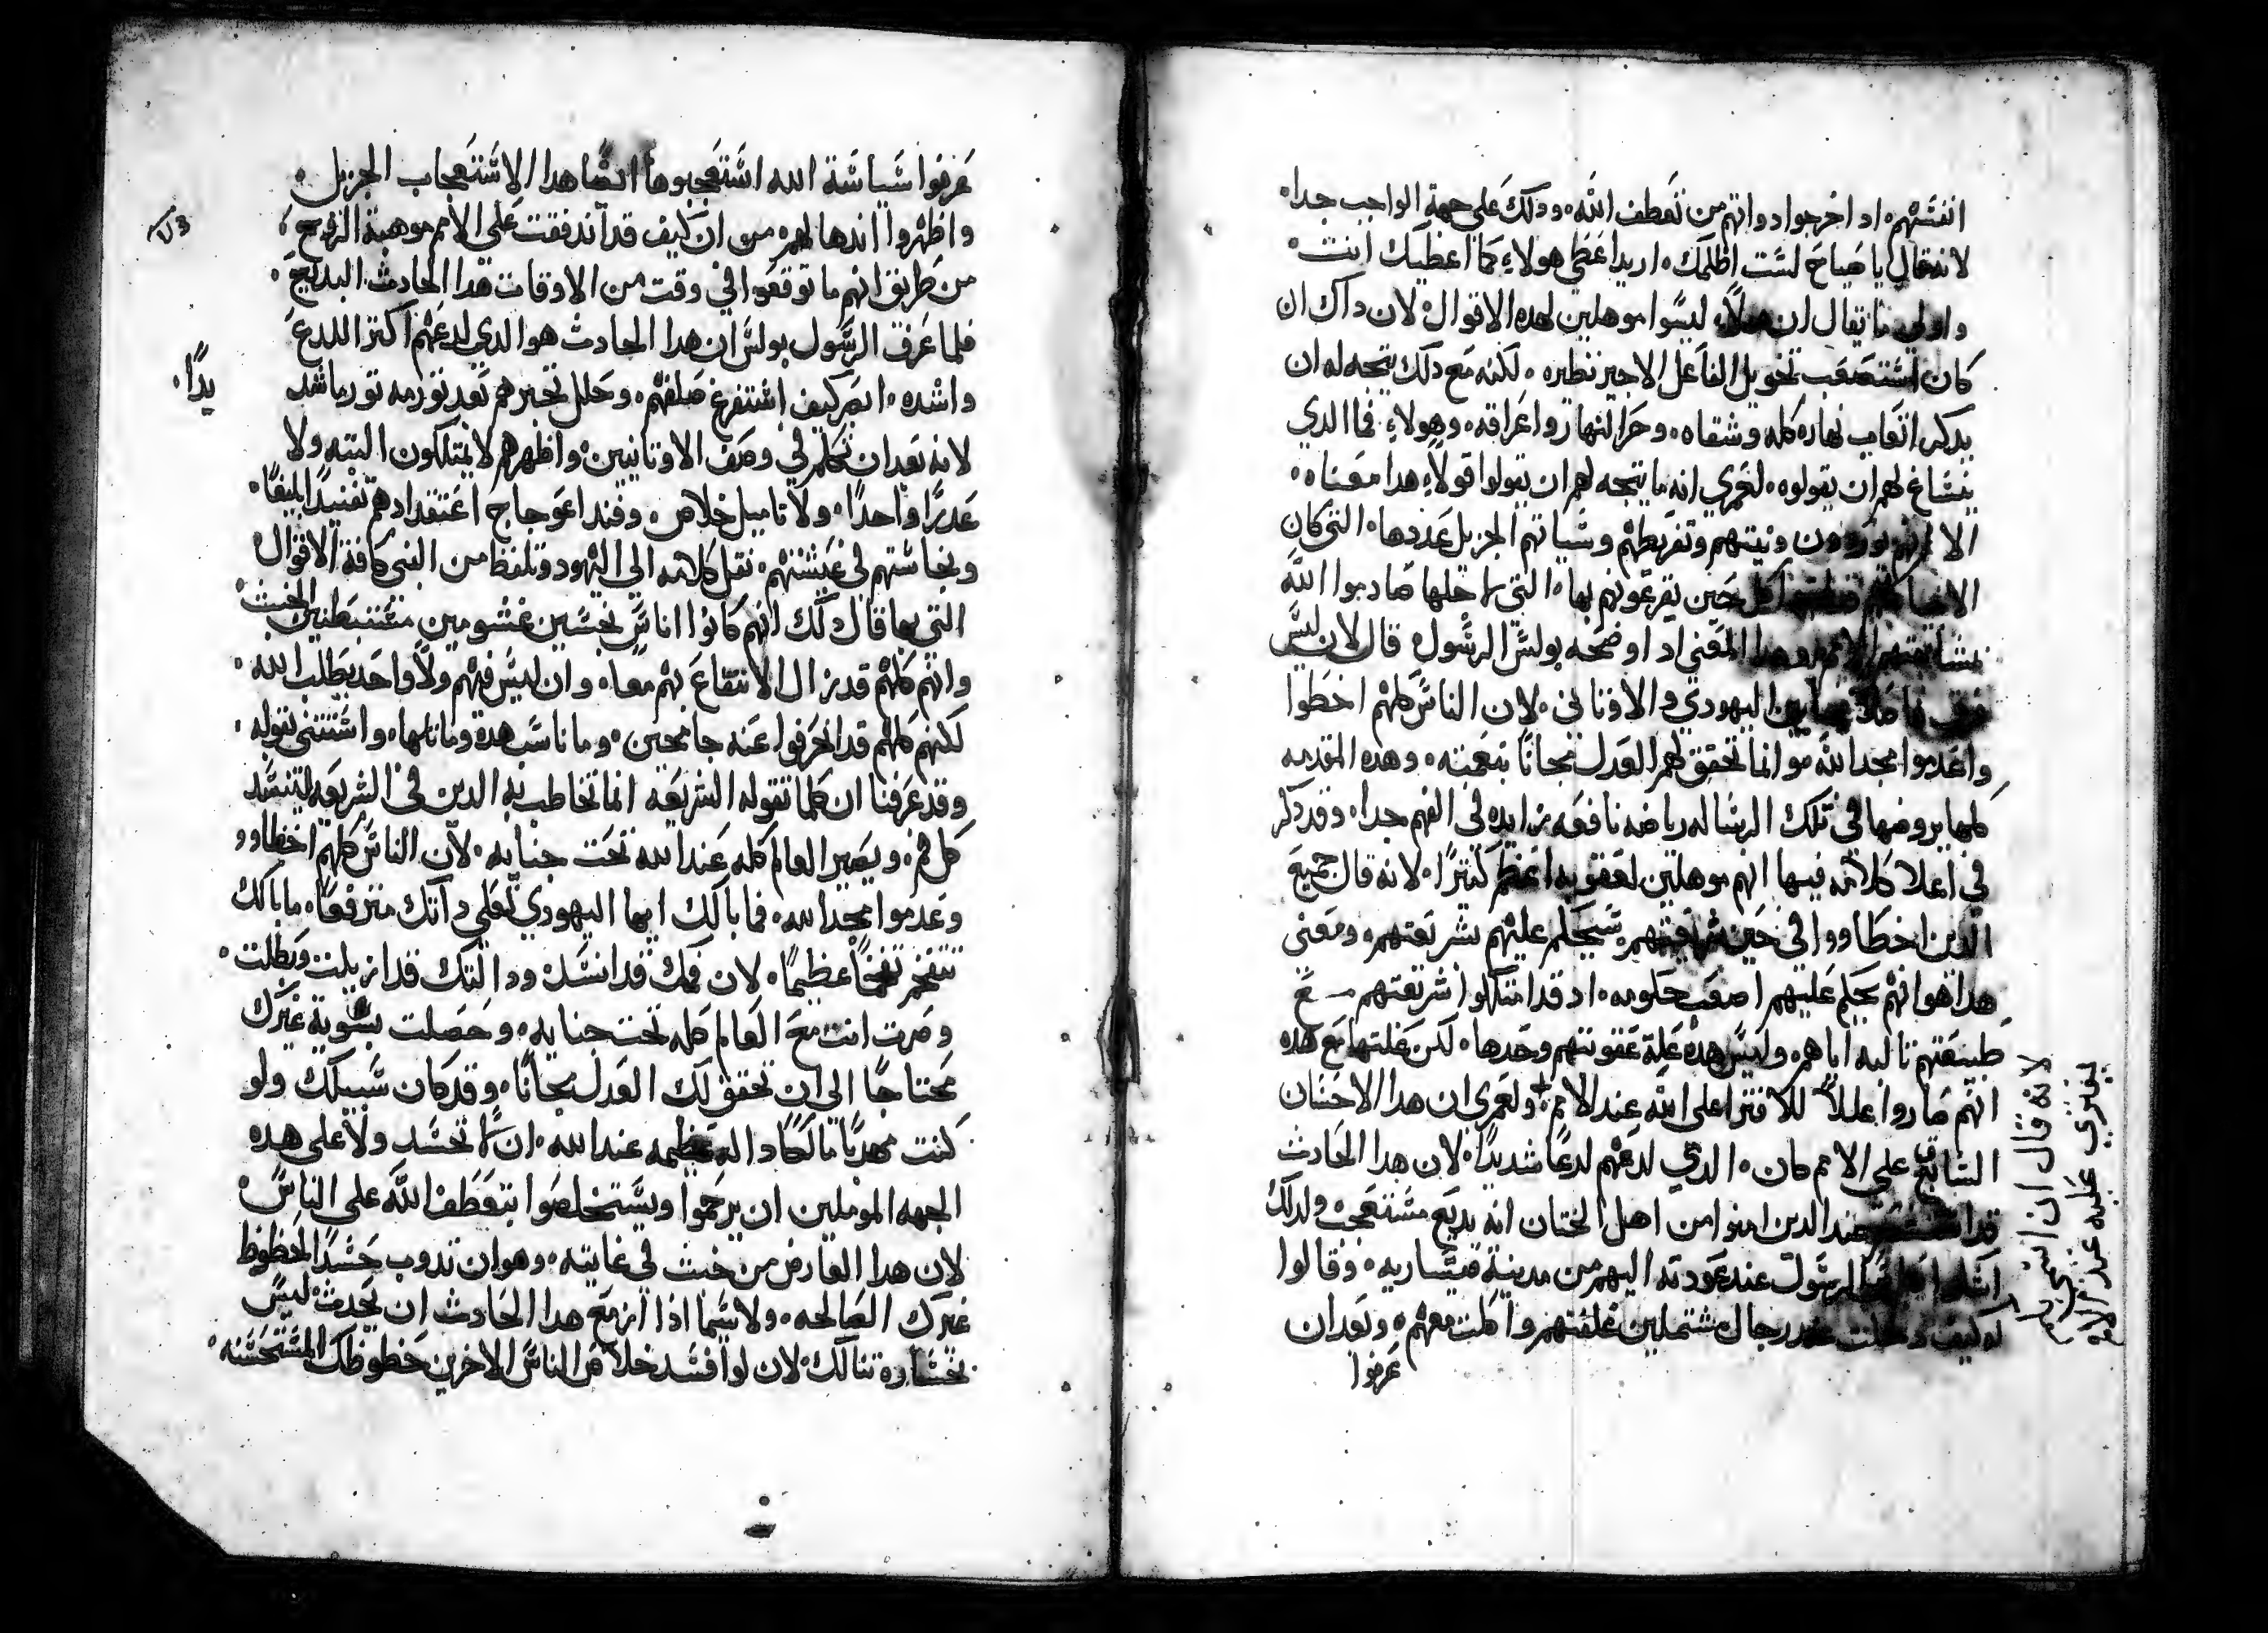 انفسهم، اد اخرجوا دواتهم من تعطف الله، ودلك على جهة الواجب جدا،
لانه قال يا صاح لست اظلمك، اريد اعطي هولاء كما اعطيك انت،
واولي ما يقال ان هولاء ليسوا موهلين لهده الاقوال، لان داك ان
كان استصعب تخويل الفاعل الاجير نظيره، لكنه مع دلك يتجه له ان
يدكر اتعاب نهاره كله وشقاه، وحر النهار واعراقه، وهولاء فما الدي
ينساغ لهم ان يقولوه، لعمري انه ما يتجه لهم ان يقولوا قولاً هدا معناه،
الا انهم ونيتهم وتفريطهم وسياتهم الجزيل عددها، التي كان
الانبيا كل حين يقرعونهم بها، التي لاجلها صادموا الله
الامم وهدا المعني اد اوضحه بولس الرسول قال لان ليس
فرق بين اليهودي والاوتاني، لان الناس كلهم اخطوا
واعدموا مجد الله، وانما تحقق لهم العدل مجانًا بنعمته، وهده المقدمه
كلها يروضها في تلك الرساله رياضه نافعه زايده في الفهم جدا، وقد دكر
في اعلا كلامه فيها انهم موهلين لعقوبه اعظم كتيرًا، لانه قال جميع
الدين اخطاووا في حين شريعتهم، سيحكم عليهم بشريعتهم، ومعنى
هدا هو انهم يحكم عليهم اصعب حكومه، اد قد امتلكوا شريعتهم مع
طبيعتهم تالبه اياهم، وليس هده علة عقوبتهم وحدها، لكن علتها مع هده
انهم صاروا عللاً للافترا على الله عند الامم، ولعمري ان هدا الاحسان
السابغ على الامم كان، الدي لدعهم لدعًا شديدًا، لان هدا الحادث
قد عند الدين امنوا من اهل الختان انه بديع مستعجب، ولدلك
الرسول عند عودته اليهم من مدينة قيساريه، وقالوا
له كيف دخلت عند رجال مشتملين غلفتهم واكلت معهم، وبعد ان
عرفوا
لانه قال ان اسم الله
يفتري عليه عند الامم
عرفوا سياسة الله استعجبوها ايضًا هدا الاستعجاب الجزيل،
واظهروا اندهالهم من ان كيف قد اندفقت على الامم موهبة الروح،
من طريق انهم ما توقعوا في وقت من الاوقات هدا الحادث البديع،
فلما عرف الرسول بولس ان هدا الحادث هو الدي لدعهم اكتر اللدع
واشده، ابصر كيف استفرغ صلفهم، وحلل تجبرهم بعد تورمه تورما شد
يدًا،
لانه بعد ان تكلم في وصف الاوتانيين، واظهرهم لا يمتلكون البته ولا
عدرًا واحدًا، ولا تاميل خلاص، وفند اعوجاج اعتقدادهم تفنيدًا بليغًا،
ونجاستهم في عيشتهم، نقل كلامه الى اليهود وتلفظ من النبي كافة الاقوال
التي بها قال دلك انهم كانوا اناس نجسين غشومين مغتبطين الخبث
وانهم كلهم قد زال الانتفاع بهم معا، وان ليس فيهم ولا واحد يطلب الله،
لكنهم كلهم قد انحرفوا عنه جامحين، وما ناسب هده وماتلها، واستتني بقوله،
وقد عرفنا ان كلما تقوله الشريعه انما تخاطب به الدين في الشريعه، لينسد
كل فم، ويصير العالم كله عند الله تحت جنايه، لان الناس كلهم اخطاوو
وعدموا مجد الله، فما بالك ايها اليهودي تعلي داتك مترفعًا، ما بالك
تنتفخ نفخًا عظيمًا، لان فمك قد انسد، ودالتك قد ازيلت وبطلت،
وصرت انت مع العالم كله تحت جنايه، وحصلت بسوية غيرك
محتاجًا الى ان تحقق لك العدل مجانًا، وقد كان سبيلك ولو
كنت مهديًا مالكًا داله عظيمه عند الله، ان لا تحسد ولا على هده
الجهه الموملين ان يرحموا ويستخلصوا بتعطف الله على الناس،
لان هدا العارض من خبث في غايته، وهو ان تدوب حسدًا لحظوظ
غيرك الصالحه، ولاسيما ادا ازمع هدا الحادث ان يحدث ليس
بخساره تنالك، لان لو افسد خلاص الناس الاخرين حظوظك المستحسنه،